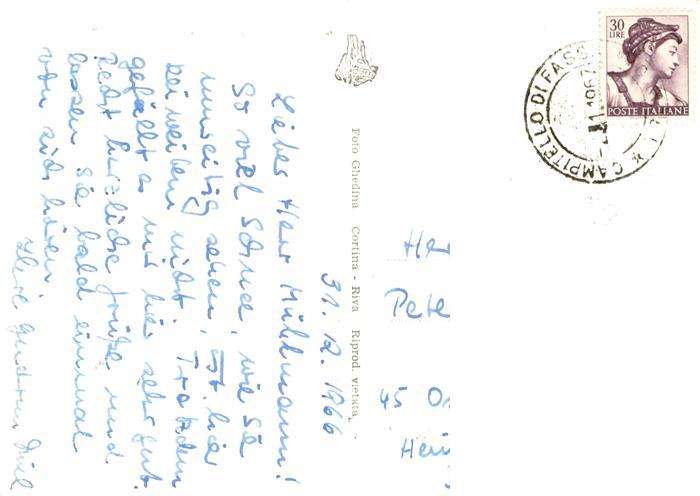 31. 12. 1966
Liebes Herr Mühlmann!
So viel Schnee, wie Sie
umseitig sehen, ist hie
bei weitem nicht. Trotzdem
gefällt es mir hier sehr gut.
Recht herzliche Grüße und
lassen Sie bald einmal
von sich hören.
Ihre Gudrun
Foto Ghedina Cortina - Riva Riprod. vietata
30
LIRE
POSTE ITALIANE
CAMPITELLO DI FASS
1967
Her
Pete
45 Os
Hein